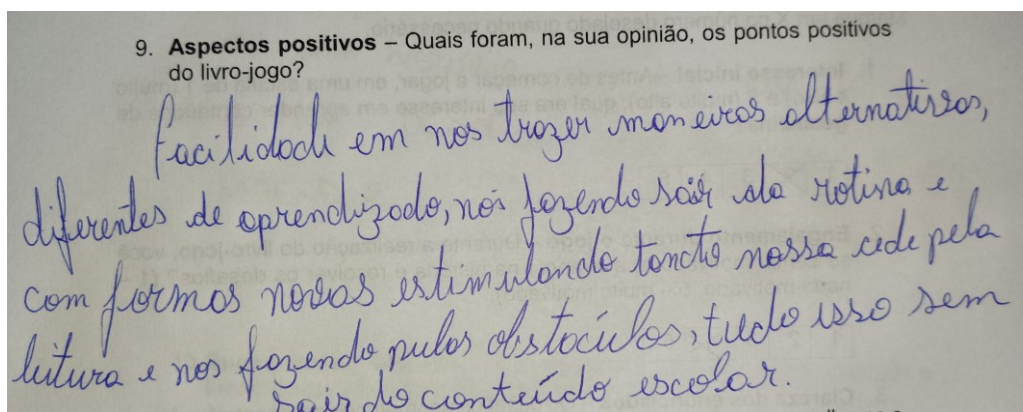 9. Aspectos positivos – Quais foram, na sua opinião, os pontos positivos
do livro-jogo?
Facilidade em nos trazer maneiras alternativas,
diferentes de aprendizado, nos fazendo sair da rotina e
com formas novas estimulando tancto nossa cede pela
leitura e nos fazendo pulos obstocúlos, tudo isso sem
sair do conteúdo escolar.